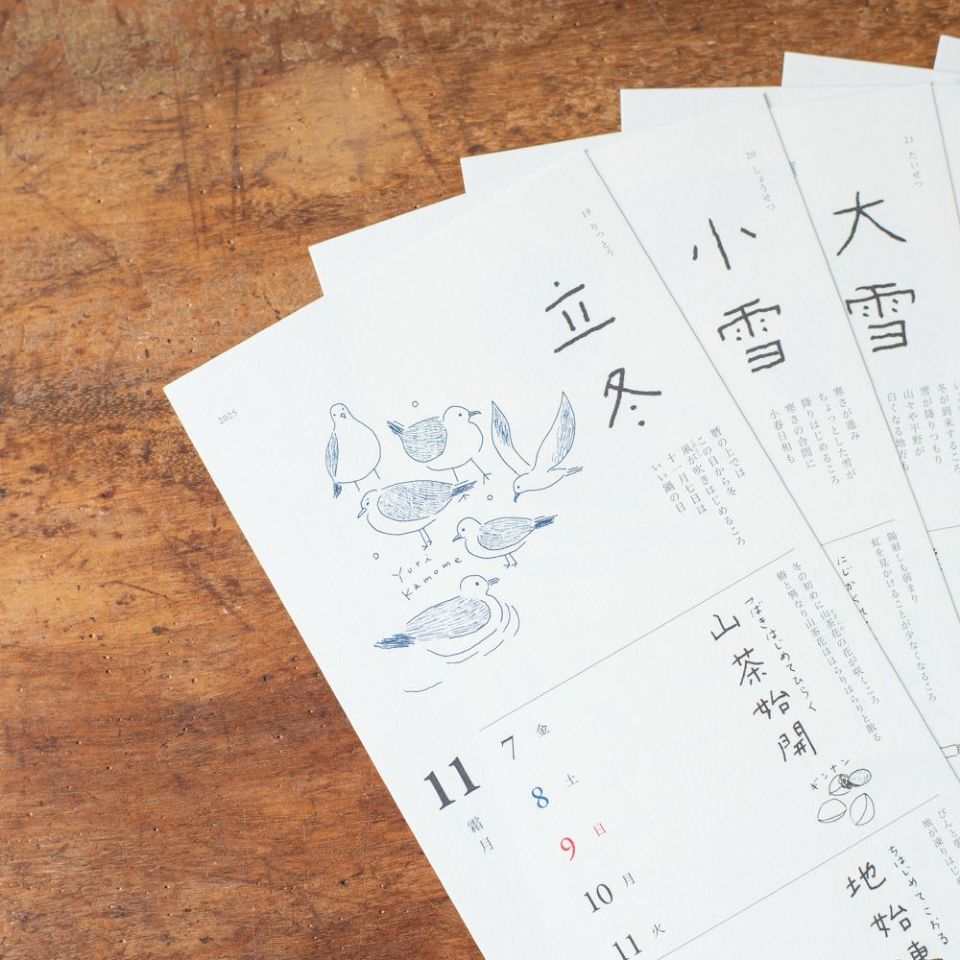 2025
19 りっとう
立冬
暦の上では
この日から冬
凩が吹きはじめるころ
十一月七日は
いい鍋の日
Yuri
Kamome
つばきはじめてひらく
山茶始開
冬の初めに山茶花の花が咲くころ
椿と異なり山茶花ははらりはらりと散る
ギンナン
11
霜月
7 金
8 土
9 日
10 月
11 火
ちはじめてこおる
地始凍
20 しょうせつ
小雪
寒さが進み
ちょっとした雪が
降りはじめるころ
寒さの合間に
小春日和も
にじかくれ
陽射しも弱まり
虹を見かけることが少なくなるころ
21 たいせつ
大雪
冬が到来するころ
雪が降りつもり
山々や平野が
白くなる地方も